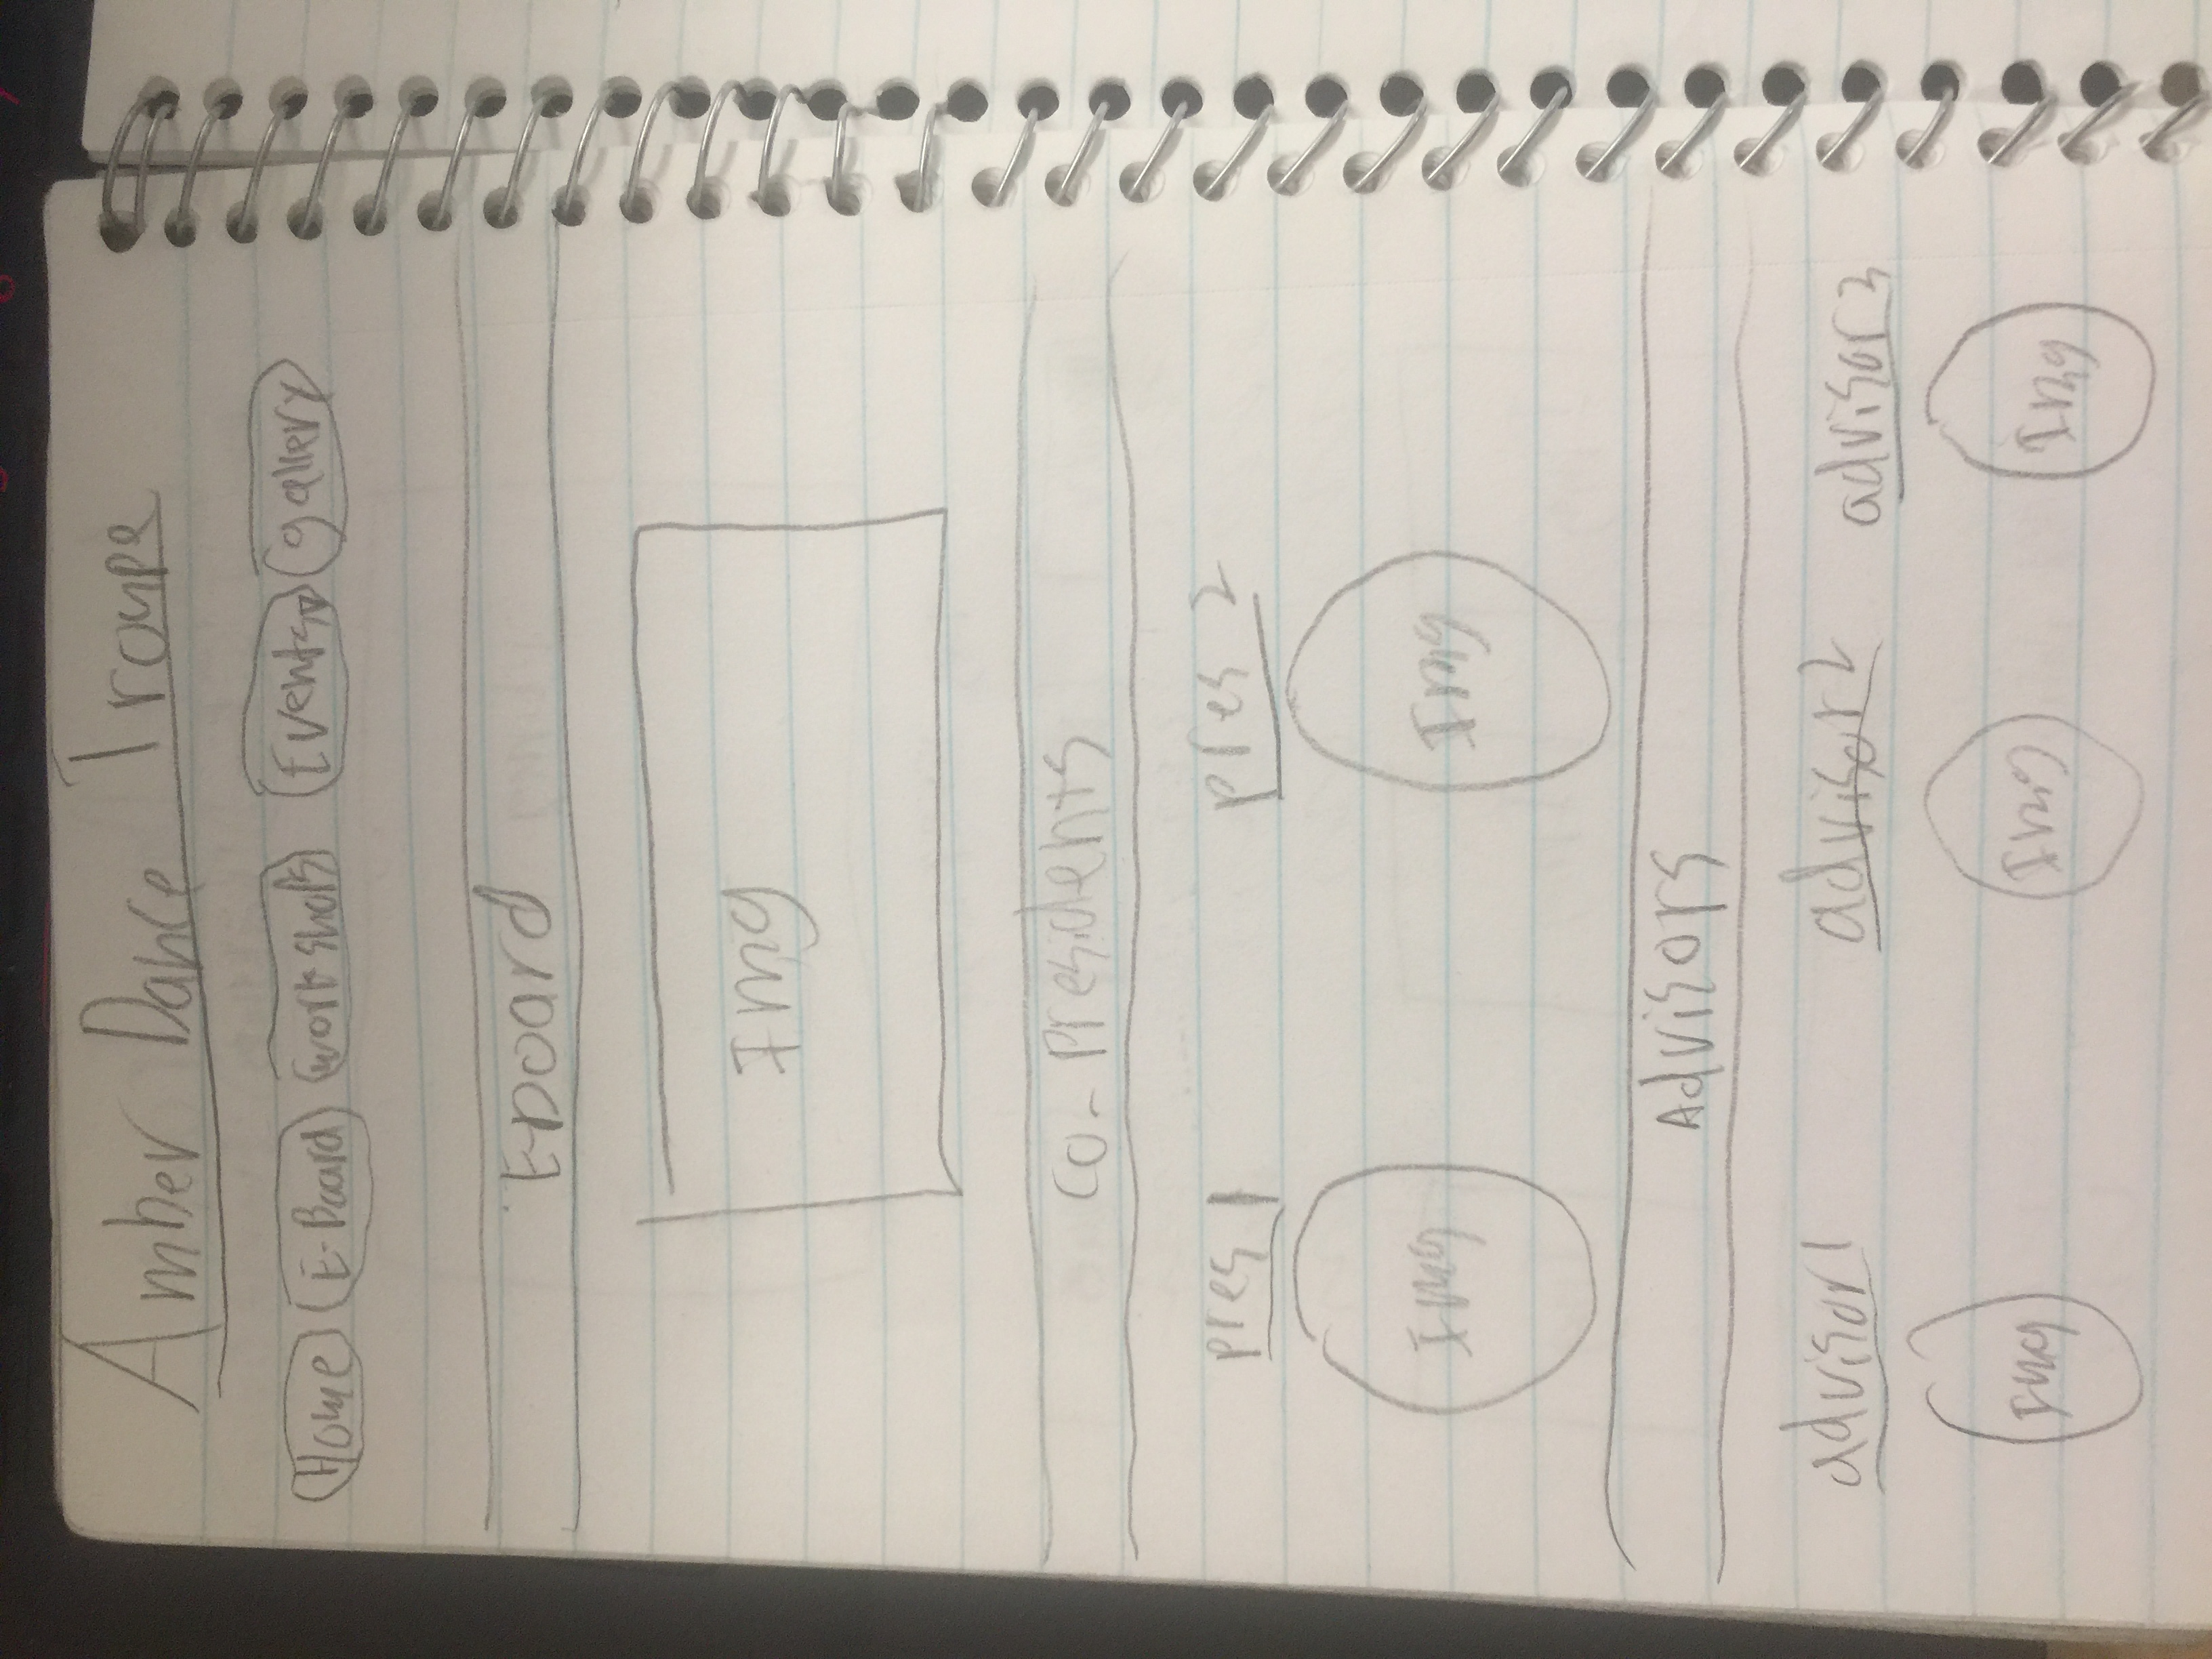 Amber Dance Troupe
Home E-Board workshops Events gallery
E-board
Img
co-presidents
pres 1 pres 2
Img Img
Advisors
advisor1 advisor2 advisor3
Img Img Img